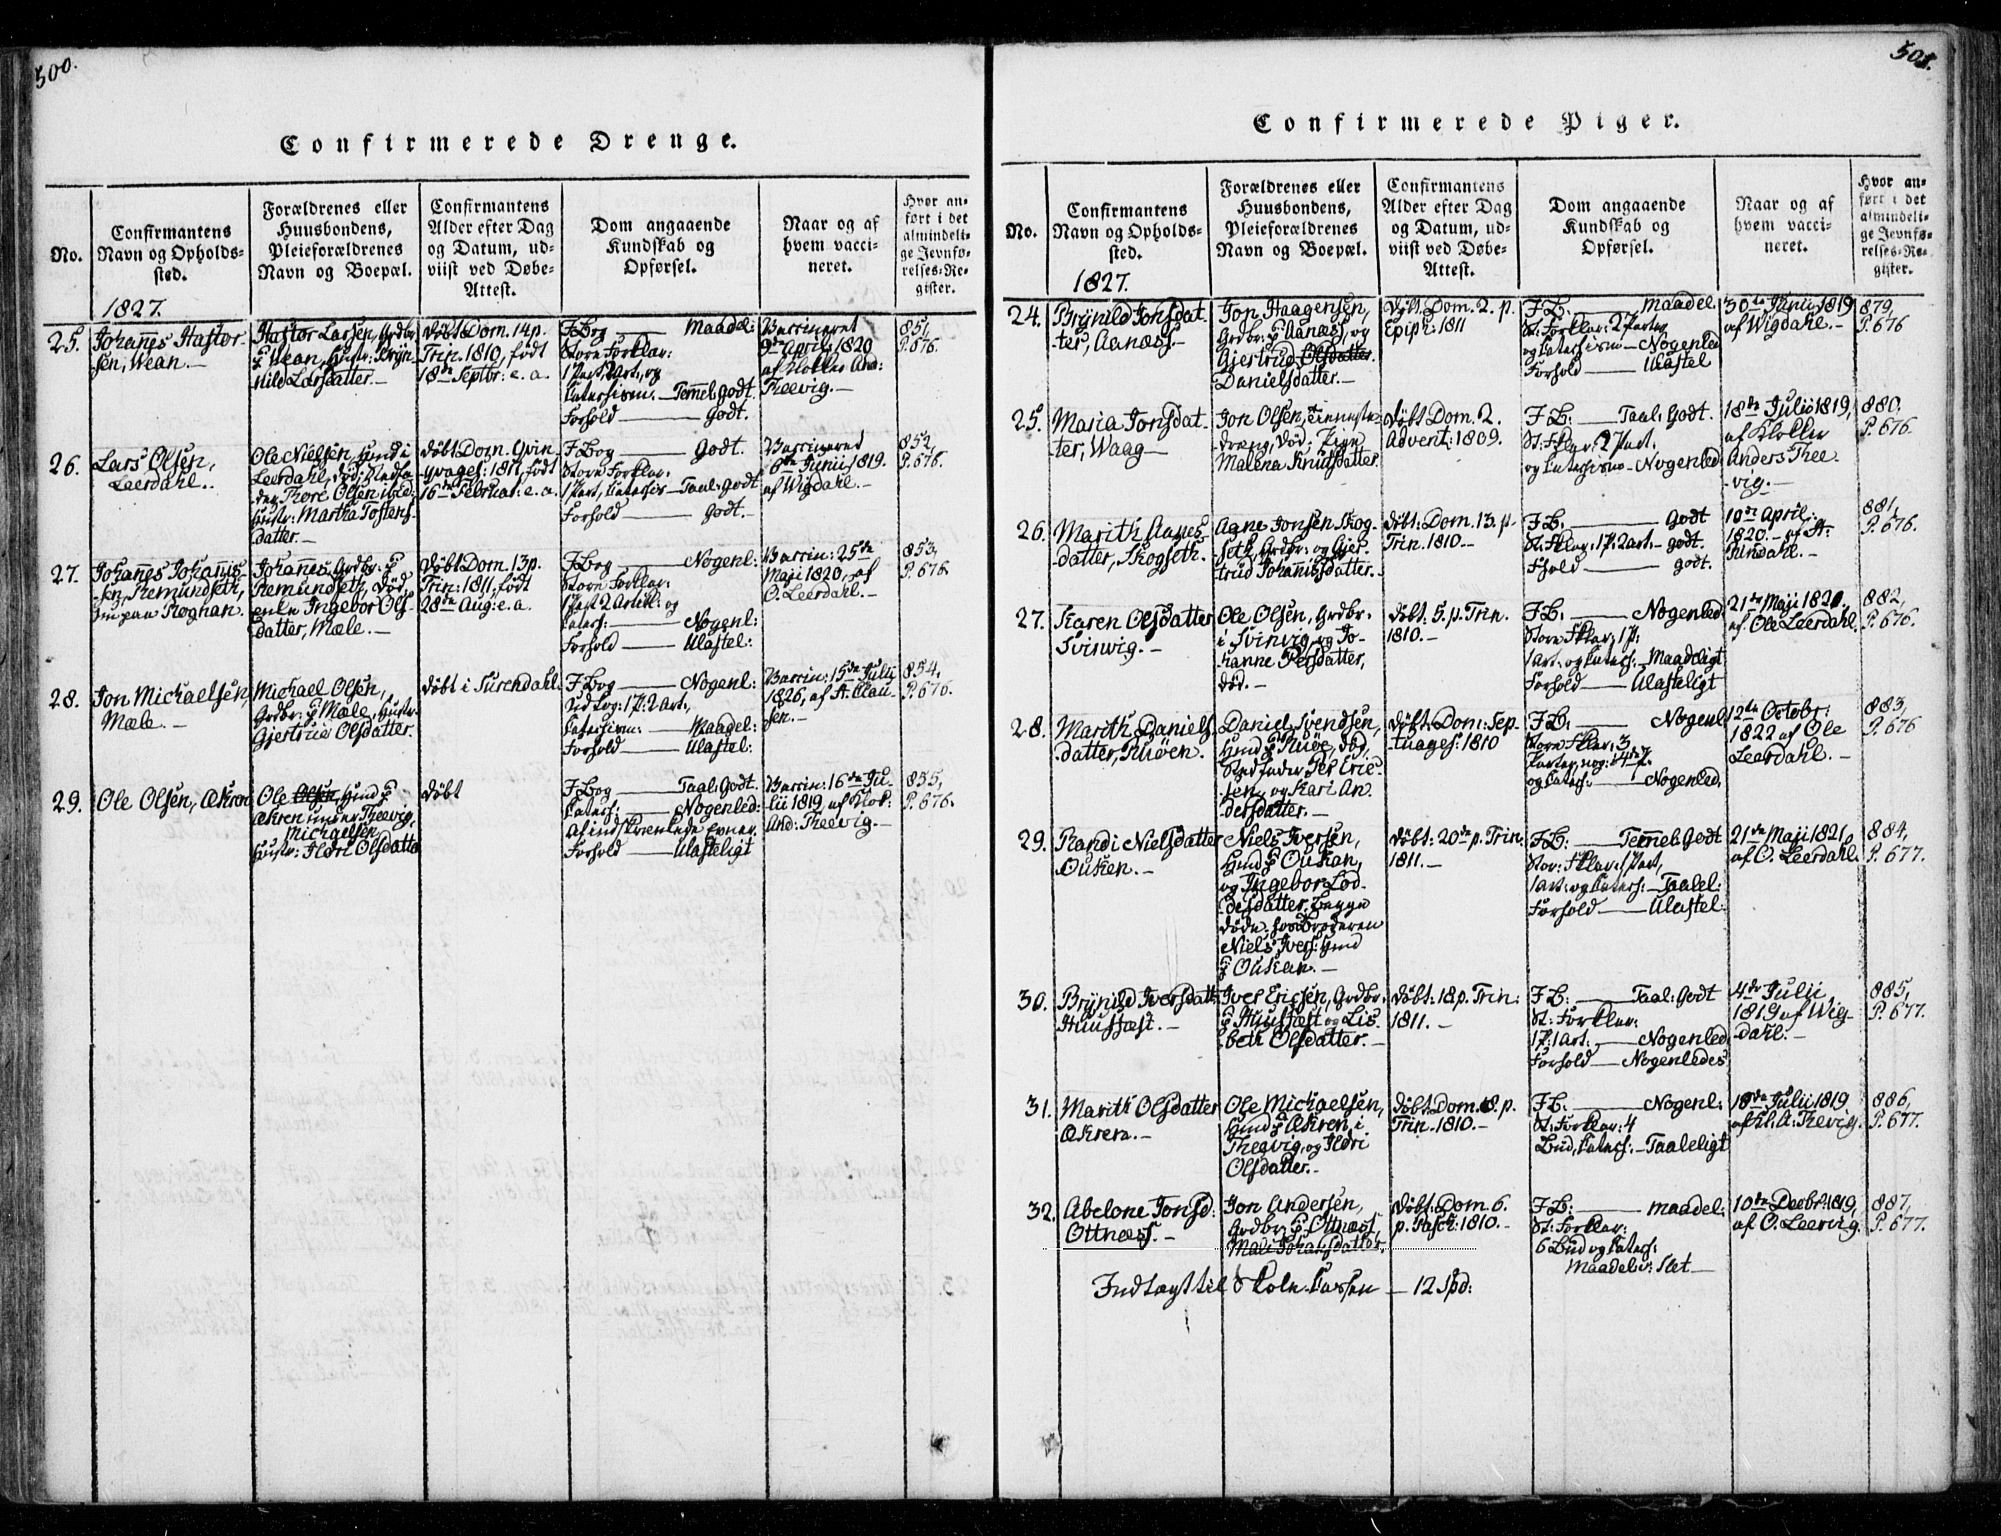 500.
Confirmerede Drenge.
No.
Confirmantens Navn og Opholdssted.
Forældrenes eller Huusbondens, Pleieforældrenes Navn og Boepæl.
Confirmantens Alder efter Dag og Datum, udviist ved Døbe-Attest.
Dom angaaende Kundskab og Opførsel.
Naar og af hvem vaccineret.
Hvor anført i det almindelige Jevnførelses-Register.
1827.
25.
Johannes Hastor-
sen, Wean.—
Hastor Larsen, Grdbr.
Wean, Hustr:
Larsdatter.—
Døbt Dom. 14 p.
Trin. 1810, født
18de Septbr: e. a.
F. Bog — Maadel:
Store Forklar:
1 Part, 2 Art., og
Catechism. — Temmel: godt.
Forhold — Godt.
Vaccineret
9de April: 1820
af Klokker And:
Theevig.—
851,
P. 676.
26.
Lars Olsen,
Leerdahl.
Ole Nielsen, Huusmd i
Leerdahl, død; Stedfa-
der Thore Olsen ibid:
Hustr: Martha Tostens-
datter.—
Døbt Dom. Qvin-
qvages: 1811, født
16de Februar: e. a.
F. Bog — Godt.
Store Forklar:
1 Part, Catechis — Taal: godt
Forhold — godt.—
Vaccineret
6de Junii 1819.
af Wigdahl.—
852,
P. 676.
27.
Johannes Johannes-
sen, Remundset,
Roghan.
Johannes, Grdbr:
Remundset, død
Enke Ingebor Ols-
datter, Mæle.—
Døbt Dom. 13 p.
Trin: 1811, født
28de Aug: e. a.
F. Bog — Nogenl:
Store Forklar:
1 Part 2 Artikl: og
Catech: — Nogenl:
Forhold — Ulastel:
Vaccin: 25de
Maji 1820, af
O. Leerdahl.—
853,
P. 676.
28.
Jon Michaelsen,
Mæle.—
Michael Olsen,
Grdbr: Mæle, Hustr.
Gjertrue Olsdatter.
Døbt i Surendahl.
F. Bog — Nogenl:
Udtog: 1 P: 2 Art.,
Catechism: — Maadel:
Forhold — Ulastel:
Vaccin: 15de Julii
1826, af A. Clau-
sen.—
854,
P. 676.
29.
Ole Olsen, Økren
Ole Olsen, Huusmd
Økren under Theevig,
Michaelsen
Hustr: Ildri Olsdatter
Døbt
F. Bog — Taal: Godt.
Catech: — Nogenled:
Af indskrenkede Evner.
Forhold — Ulasteligt
Vaccin: 16de Ju-
lii 1819 af Klok:
And: Theevig.—
855,
P. 676.
501.
Confirmerede Piger.
No.
Confirmantens Navn og Opholdssted.
Forældrenes eller Huusbondens, Pleieforældrenes Navn og Boepæl.
Confirmantens Alder efter Dag og Datum, udviist ved Døbe-Attest.
Dom angaaende Kundskab og Opførsel.
Naar og af hvem vaccineret.
Hvor anført i det almindelige Jevnførelses-Register.
1827.
24.
Brynild Jonsdat-
ter, Aanæs.—
Jon Haagensen,
Grdbr: Aanæs, og
Gjertrud Olsdatter.
Danielsdatter.—
Døbt Dom. 2. p.
Epiph: 1811
F. B: — Maadel.
St. Forklar: 2 Parter
og Catechism — Nogenled
Forhold — Ulastel
30te Junii 1819
af Wigdahl.—
879,
P. 676
25.
Maria Jonsdat-
ter, Waag —
Jon Olsen, Tieneste-
dreng, død: Pige
Malena Knudsdatter
Døbt Dom. 2.
Advent: 1809.
F. B: — Taal: Godt.
St: Fklar: 2 Part.
og Catechism — Nogenled
18de Julii 1819,
af Klokker
Anders Thee-
vig.—
880,
P. 676.
26.
Marith Aanes-
datter, Skogseth.
Aane Jonsen Skog-
seth, Grdbr: og Gjer-
trud Johannisdatter.
Døbt: Dom. 13. p.
Trin. 1810.—
F. B. — Godt
St. Fklar. 1 P. 2 Art. — godt.
Fhold — godt.
10de April:
1820.— af A.
881,
P. 676.
27.
Karen Olsdatter
Svinvig.—
Ole Olsen, Grdbr.
i Svinvig, og Jo-
hanne Persdatter,
død.—
Døbt: 5. p. Trin.
1810.—
F. B: — Nogenled
Store Fklar: 1 P:
1 Art. og Catech: — Maadeligt
Forhold — Ulasteligt
21de Maji 1820.
af Ole Leerdahl.
882,
P. 676.
28.
Marith Daniels-
datter,
Daniel Svendsen,
død,
Stedfader Per Eric-
sen, og Kari An-
dersdatter.—
Døbt: Dom: Sep-
tuages: 1810
F. B: — Nogenl
Store Fklar: 3
Parter,
og Catech: — Nogenled.
12te Octobr:
1822 af Ole
Leerdahl.—
883,
P. 676
29.
Randi Nielsdatter
Ousen.—
Niels Iversen,
Huusmd
og Ingebor Lod-
desdatter, begge
døde, hos Broderen
Niels Ivers: Huusmd
Døbt: 20de p. Trin.
1811.—
F. B: — Temel: Godt
Stor: Fklar: 1 Part,
1 Art: og Catech: — Taalel:
Forhold — Ulastel:
21de Maji 1821,
af O. Leerdahl.
884,
P. 677.
30.
Brynild Iversdatt:
Huusfæst.—
Iver Ericsen, Grdbr.
Husfæst og Lis-
beth Olsdatter.—
Døbt: 18 p. Trin:
1811.—
F. B: — Taal: Godt
St: Forklar:
1 P: 1 Art: — Nogenled
Forhold — Nogenledes
4de Julii
1819 af Wig-
dahl.—
885,
P. 677.
31.
Marith Olsdatter
Økren.—
Ole Michaelsen,
Huusmd Økren i
Theevig, og Ildri
Olsdatter.—
Døbt: Dom. 8. p.
Trin. 1810.—
F. B: — Nogenl:
St: Forklar: 4
Bud, Catech: — Taaleligt
18de Julii 1819
af Kl. A: Thevig.
886,
P. 677.
32.
Abelone Jonsd:
Ottnæs.—
Jon Andersen,
Grdbr: Ottnæs,
Mali Johansdatter.
Døbt: Dom. 6.
p. Pasch: 1810.—
F. B: — maadel:
St: Forklar:
6 Bud og Catech:
Maadelig: Slet —
10de Decbr: 1819,
af O. Leervig.
887,
P. 677.
Indtægt til Skole-Cassen — 12 Spd: